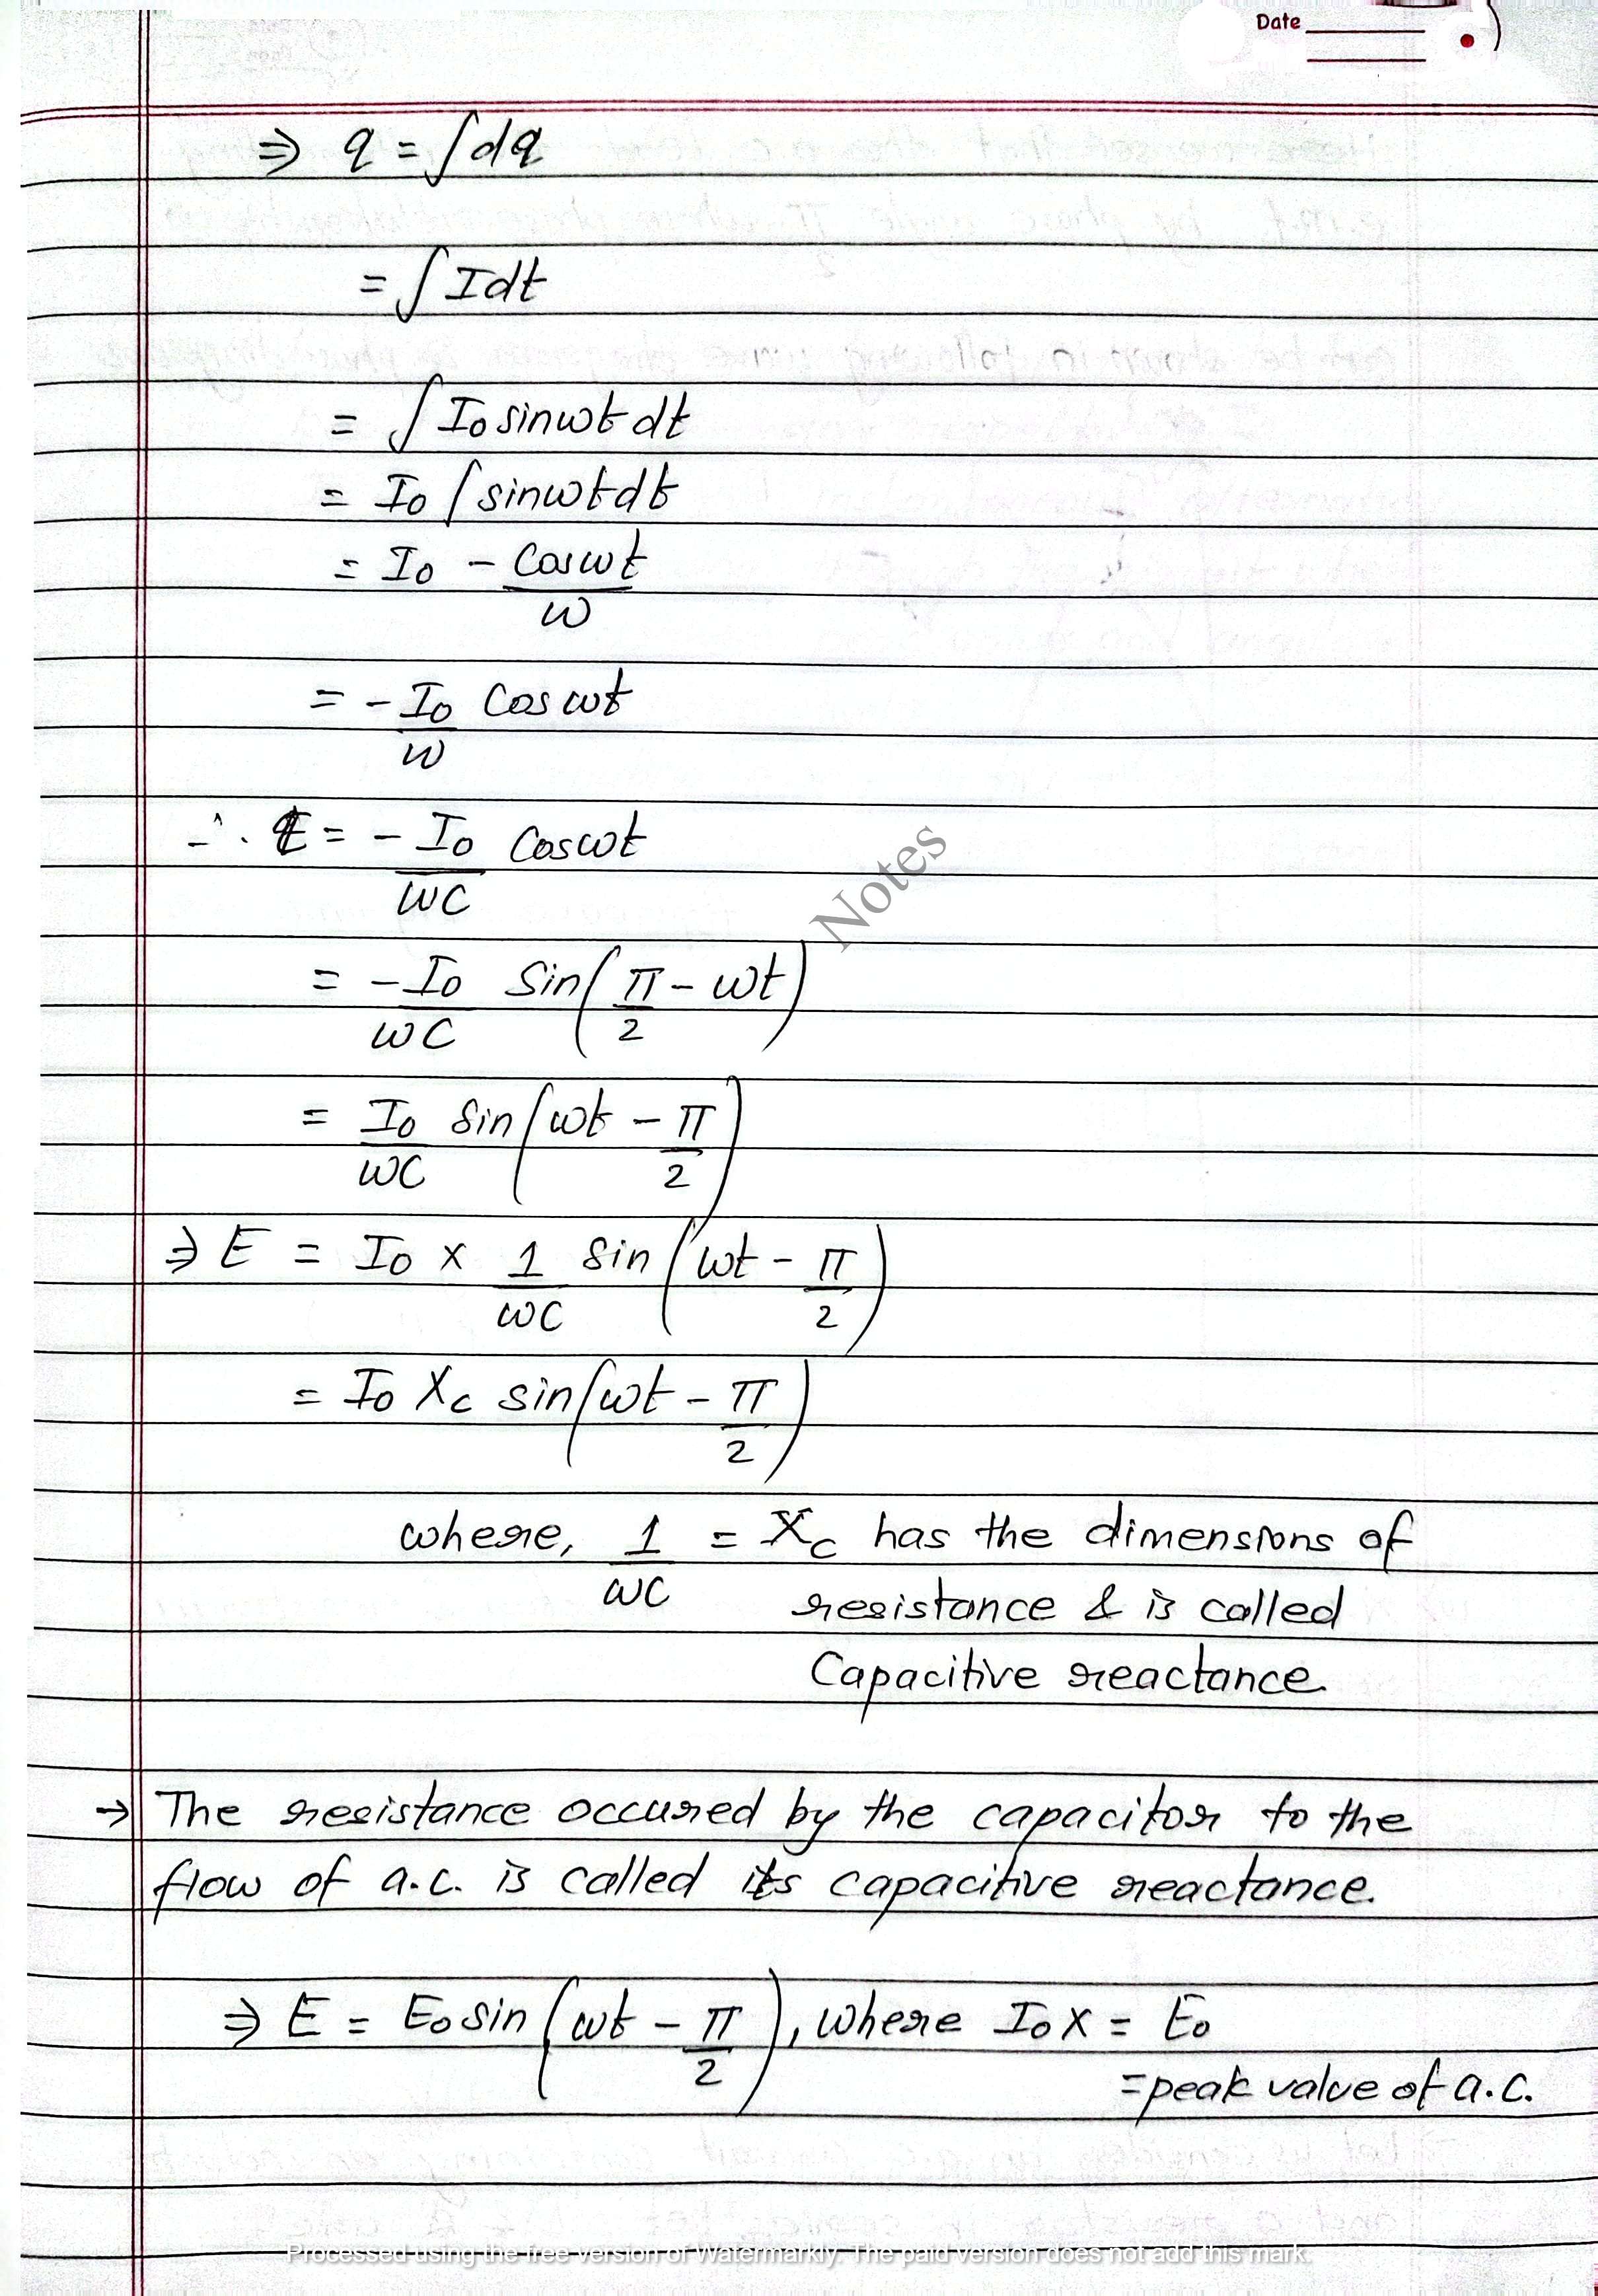 Date
⇒ q = ∫dq
= ∫ I dt
= ∫ I₀ sinωt dt
= I₀ ∫ sinωt dt
= I₀ - cosωt/ω
= - I₀/ω cos ωt
∴ E = - I₀/ωC cosωt
Notes
= - I₀/ωC sin(π/2 - ωt)
= I₀/ωC sin(ωt - π/2)
⇒ E = I₀ x 1/ωC sin(ωt - π/2)
= I₀ Xc sin(ωt - π/2)
where, 1/ωC = Xc has the dimensions of
resistance & is called
Capacitive reactance.
→ The resistance occured by the capacitor to the
flow of a.c. is called its capacitive reactance.
⇒ E = E₀ sin(ωt - π/2), where I₀X = E₀
= peak value of a.c.
Processed using the free version of Watermarkly. The paid version does not add this mark.